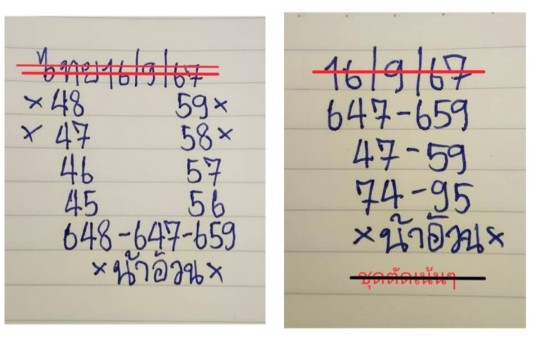 ไทย16/9/67
×48 59×
×47 58×
46 57
45 56
648-647-659
×น้าอ้วน×
16/9/67
647-659
47-59
74-95
×น้าอ้วน×
ชุดตัดเน้นๆ